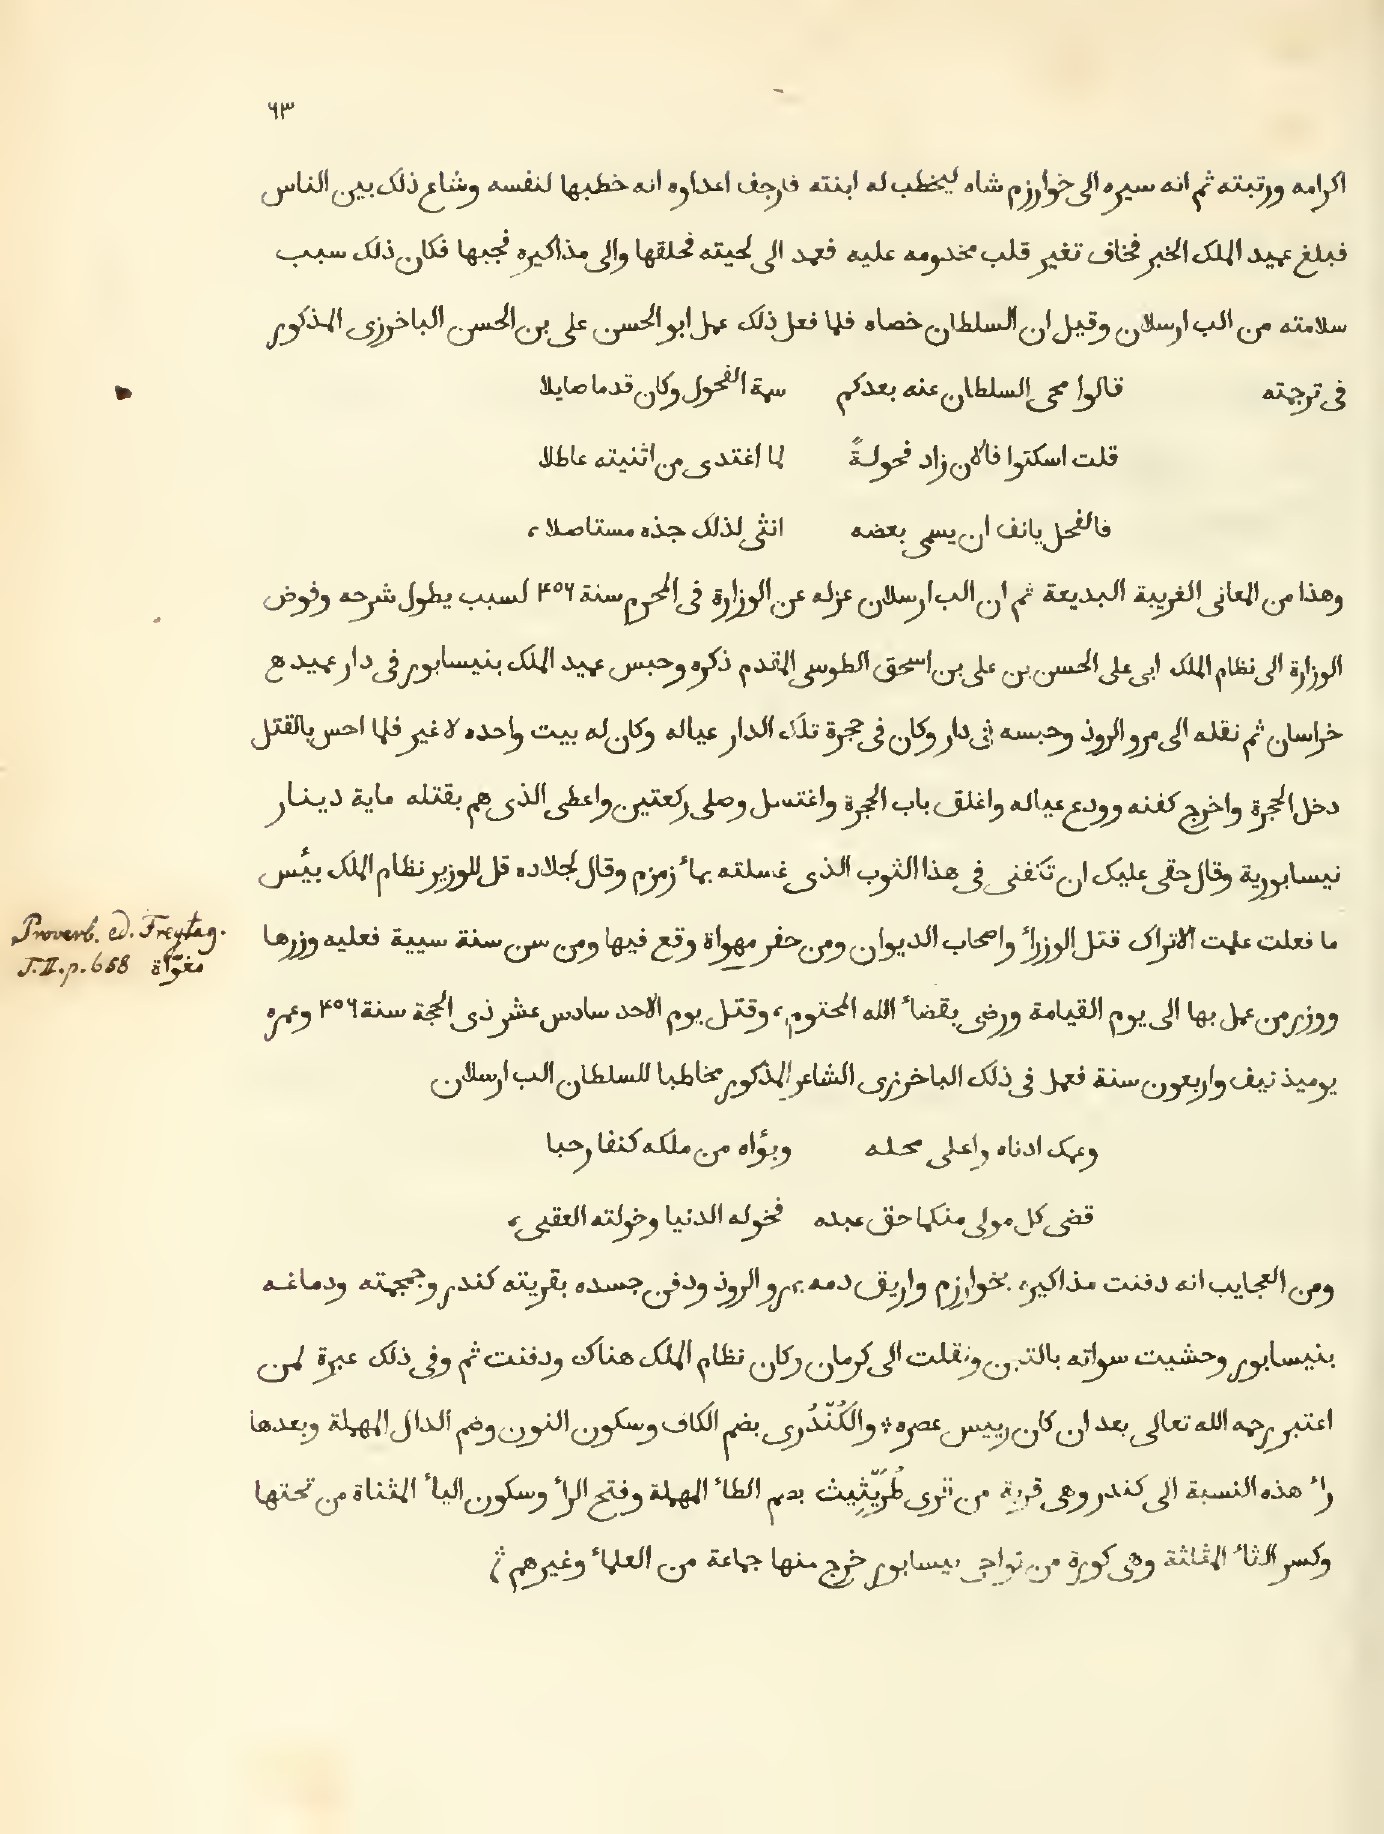 ٦٣
اكرامه ورتبته ثم انه سيره الى خوارزم شاه ليخطب له ابنته فارجف اعداوه انه خطبها لنفسه وشاع ذلك بين الناس
فبلغ عميد الملك الخبر فخاف تغير قلب مخدومه عليه فعمد الى لحيته فحلقها والى مذاكيره فجبها فكان ذلك سبب
سلامته من الب ارسلان وقيل ان السلطان خصاه فلما فعل ذلك عمل ابو الحسن على بن الحسن الباخرزى المذكور
فى ترجمته قالوا محى السلطان عنه بعدكم سمة الفحول وكان قدما صايلا
قلت اسكتوا فالان زاد فحولةً لما اغتدى من اثنيته عاطلا
فالفحل يانف ان يسمى بعضه انثى لذلك جذه مستاصلا،
وهذا من المعانى الغريبة البديعة ثم ان الب ارسلان عزله عن الوزارة فى المحرم سنة ۴٥٦ لسبب يطول شرحه وفوض
الوزارة الى نظام الملك ابى على الحسن بن على بن اسحق الطوسى المقدم ذكره وحبس عميد الملك بنيسابور فى دار عميدها
خراسان ثم نقله الى مرو الروذ وحبسه فى دار وكان فى حجرة تلك الدار عياله وكان له بيت واحده لا غير فلما احس بالقتل
دخل الحجرة واخرج كفنه وودع عياله واغلق باب الحجرة واغتسل وصلى ركعتين واعطى الذى هم بقتله ماية دينار
نيسابورية وقال حقى عليك ان تكفنى فى هذا الثوب الذى غسلته بمأ زمزم وقال لجلاده قل للوزير نظام الملك بئس
ما فعلت علمت الاتراك قتل الوزرأ واصحاب الديوان ومن حفر مهواة وقع فيها ومن سن سنة سيية فعليه وزرها
Proverb. ed. Freytag.
T. II. p. 658 مغوّاة
ووزر من عمل بها الى يوم القيامة ورضى بقضأ الله المحتوم، وقتل يوم الاحد سادس عشر ذى الحجة سنة ۴٥٦ وعمره
يوميذ نيف واربعون سنة فعمل فى ذلك الباخرزى الشاعر المذكور مخاطبا للسلطان الب ارسلان
وعمك ادناه واعلى محله وبؤاه من ملكه كنفا رحبا
قضى كل مولى منكما حق عبده فخوله الدنيا وخولته العقبى،
ومن العجايب انه دفنت مذاكيره بخوارزم واريق دمه بمرو الروذ ودفن جسده بقريته كندر وجمجمته ودماغه
بنيسابور وحشيت سواته بالتبن ونقلت الى كرمان وكان نظام الملك هناك ودفنت ثم وفى ذلك عبرة لمن
اعتبر رحمه الله تعالى بعد ان كان رييس عصره؛ والكُنْدُرى بضم الكاف وسكون النون وضم الدال المهملة وبعدها
رأ هذه النسبة الى كندر وهى قرية من قرى طُرَيْثِيث بضم الطأ المهملة وفتح الرأ وسكون اليأ المثناة من تحتها
وكسر الثأ المثلثة وهى كورة من نواحى نيسابور خرج منها جماعة من العلمأ وغيرهم